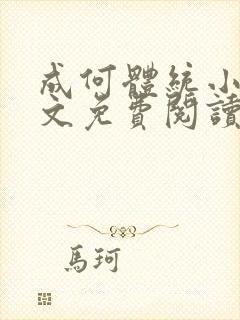 成何體統小
文免費閱讀
馬珂